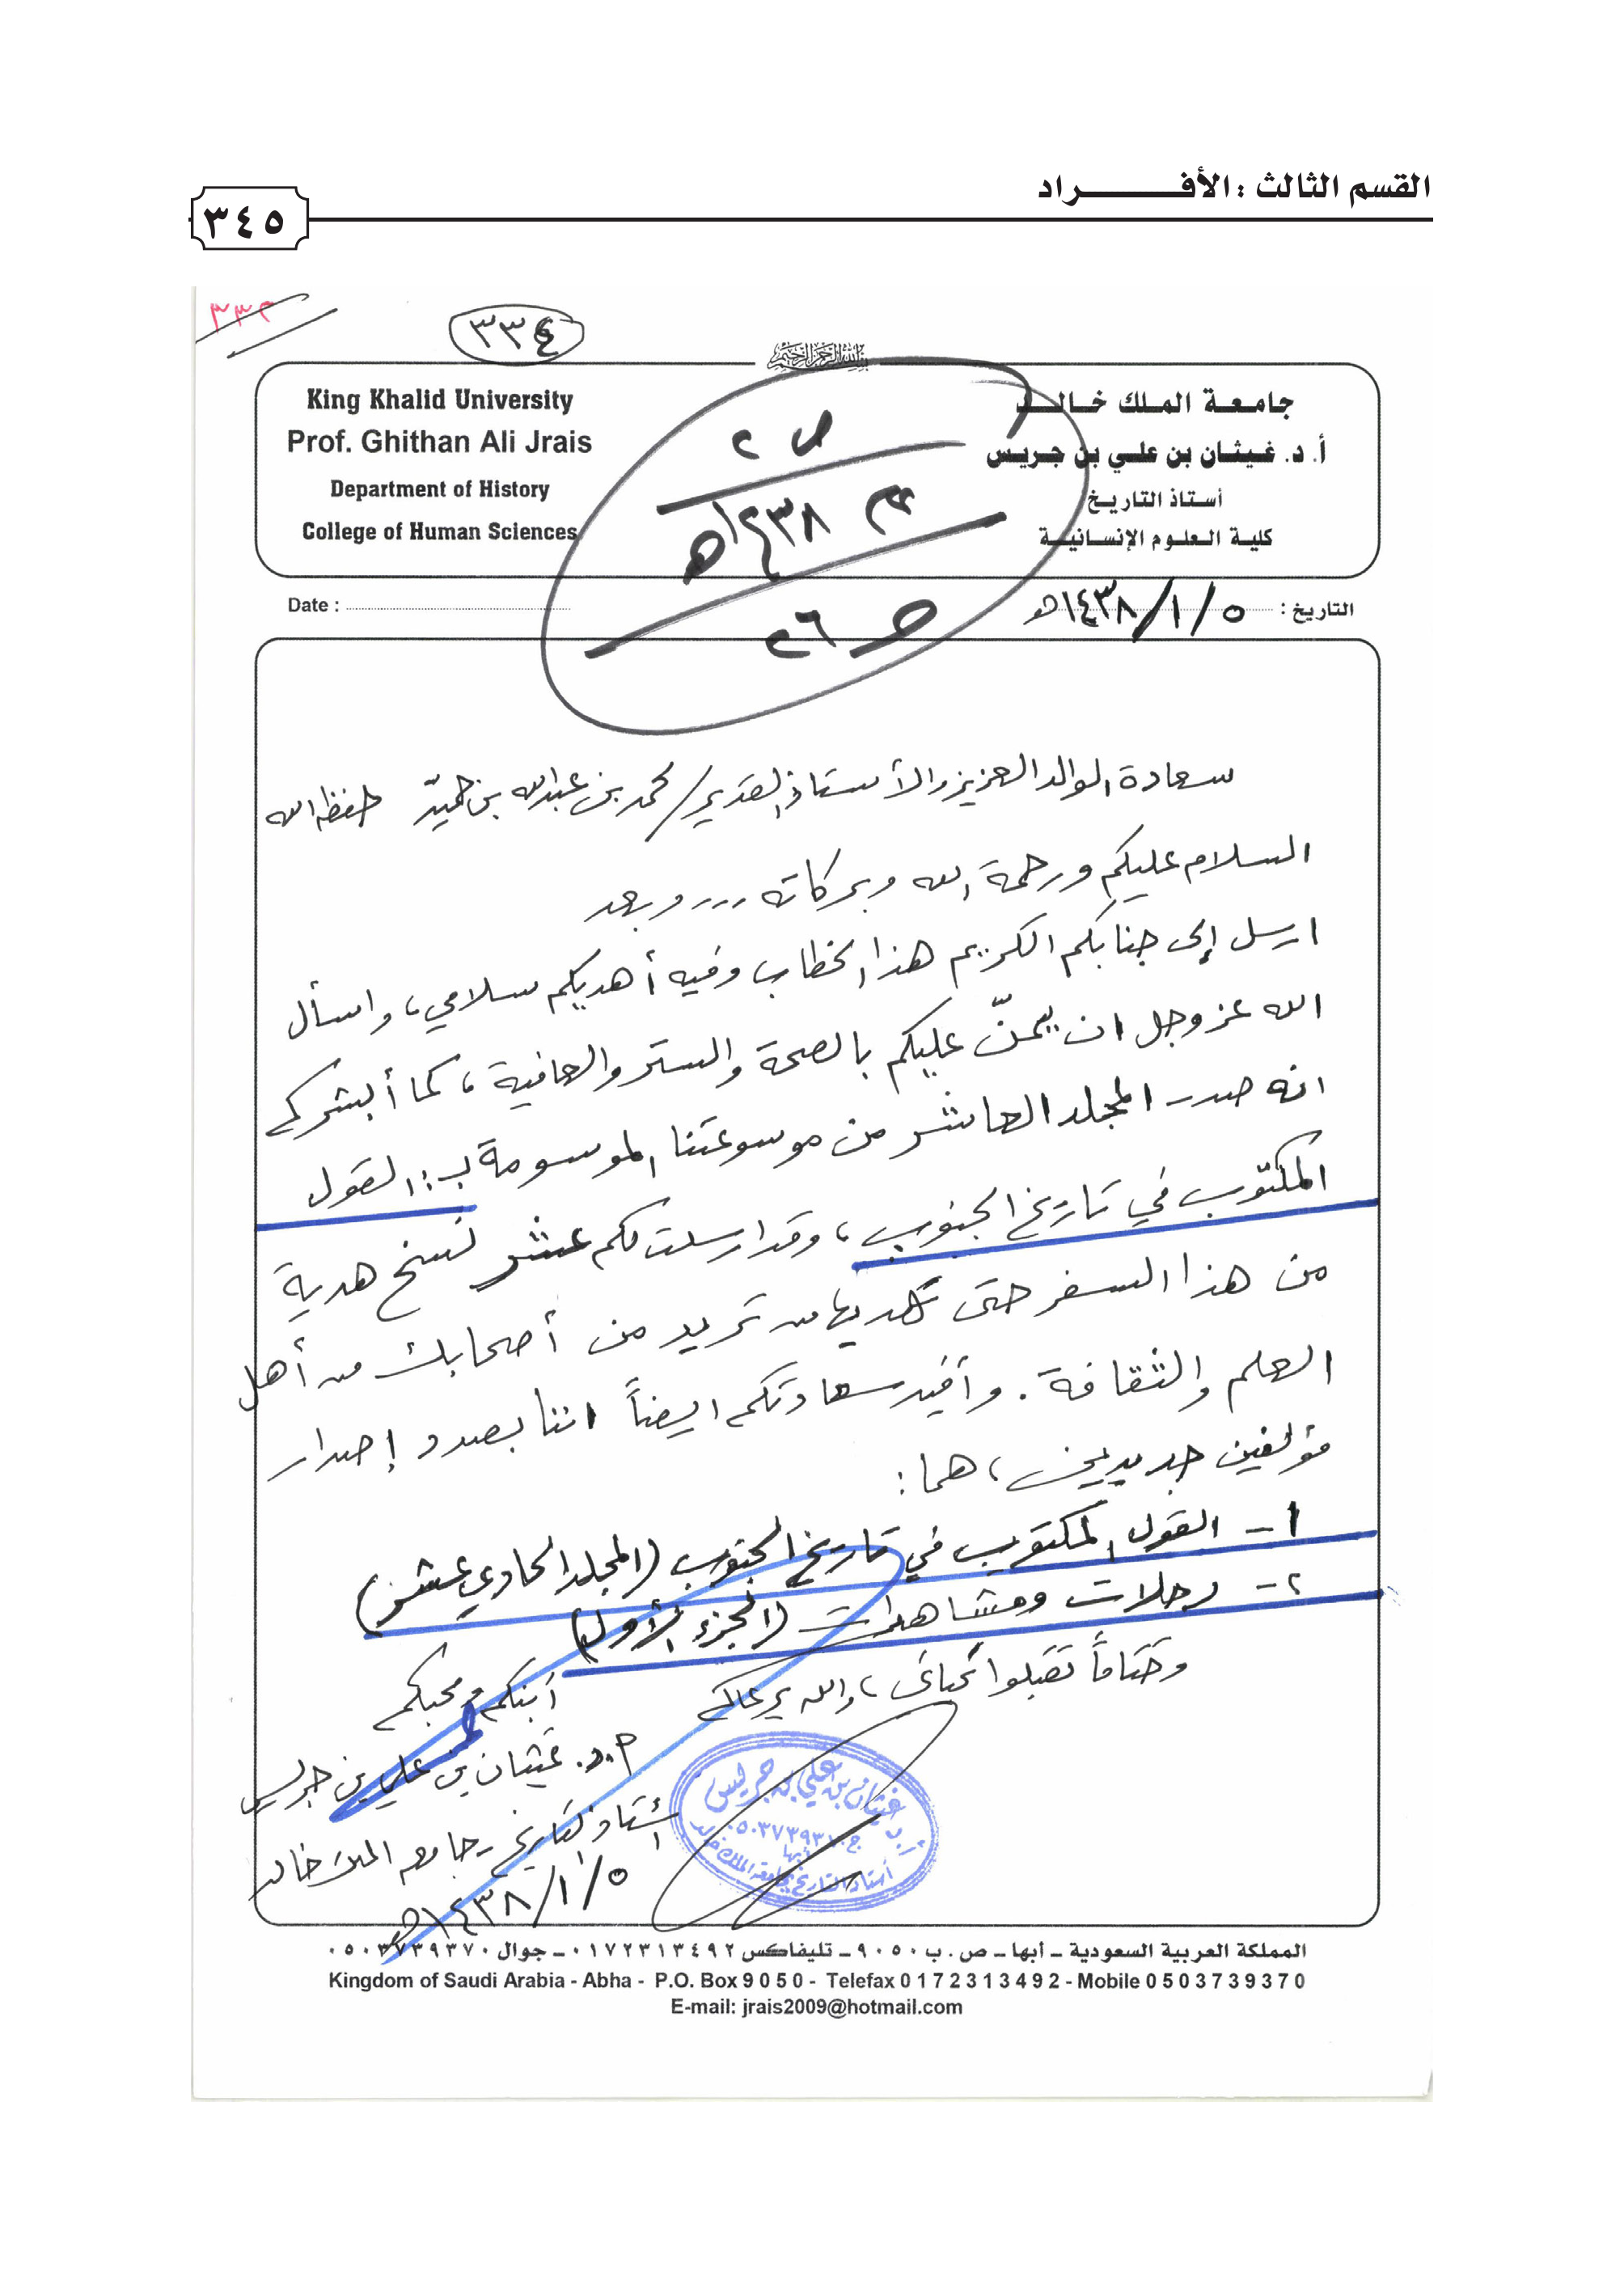 القسم الثالث : الأفـــــــراد
٣٤٥
٣٣٤
بسم الله الرحمن الرحيم
King Khalid University
Prof. Ghithan Ali Jrais
Department of History
College of Human Sciences
جامعة الملك خالد
أ. د. غيثان بن علي بن جريس
أستاذ التاريخ
كلية العلوم الإنسانية
ص ٢
١٤٣٨هـ
Date :
التاريخ : ٥/١/١٤٣٨هـ
سعادة الوالد العزيز والأستاذ القدير/ محمد بن عبدالله بن حميّد حفظه الله
السلام عليكم ورحمة الله وبركاته ... وبعد
ارسل إلى جنابكم الكريم هذا الخطاب وفيه أهديكم سلامي، واسأل
الله عز وجل ان يمنّ عليكم بالصحة والستر والعافية، كما أبشركم
انه صدر المجلد العاشر من موسوعتنا الموسومة بـ: القول
المكتوب في تاريخ الجنوب، وقد ارسلت لكم عشر نسخ هدية
من هذا السفر حتى تهديها من تريد من أصحابك من أهل
العلم والثقافة. وأفيد سعادتكم ايضاً اننا بصدد إصدار
مؤلفين جديدين، هما:
١- القول المكتوب في تاريخ الجنوب (المجلد الحادي عشر)
٢- رحلات ومشاهدات (الجزء الأول)
وختاماً تقبلوا تحياتي، والله يرعاكم
أبنكم ومحبكم
أ.د. غيثان بن علي بن جريس
أستاذ التاريخ - جامعة الملك خالد
٥/١/١٤٣٨هـ
غيثان بن علي بن جريس
أبها
أستاذ التاريخ بجامعة الملك خالد
المملكة العربية السعودية – أبها – ص . ب ٩٠٥٠ – تليفاكس ٠١٧٢٣١٣٤٩٢ – جوال ٠٥٠٣٧٣٩٣٧٠
Kingdom of Saudi Arabia - Abha - P.O. Box 9 0 5 0 - Telefax 0 1 7 2 3 1 3 4 9 2 - Mobile 0 5 0 3 7 3 9 3 7 0
E-mail: jrais2009@hotmail.com